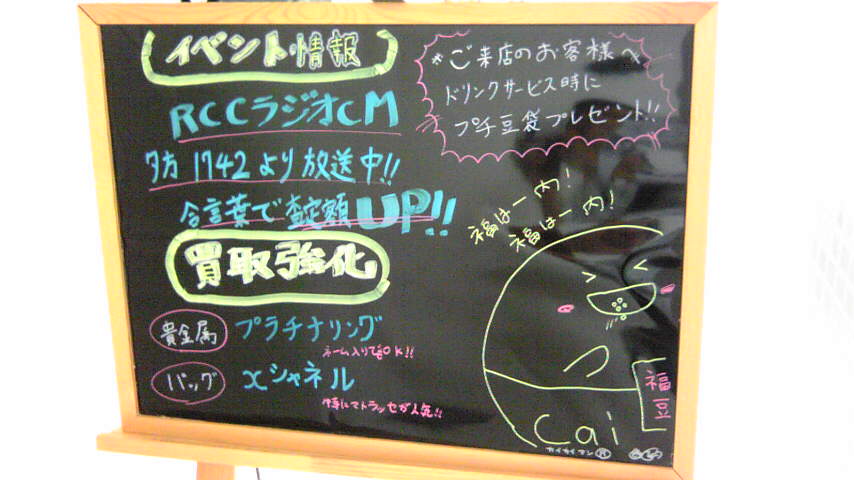 イベント情報
RCCラジオCM
夕方 1742より放送中!!
合言葉で査定額UP!!
買取強化
貴金属 プラチナリング
ネーム入りでもOK!!
バッグ xシャネル
特にマトラッセが人気!!
*ご来店のお客様へ
ドリンクサービス時に
プチ豆袋プレゼント!!
福は一内!
福は一内!
福豆
Cai
カイカイマン®